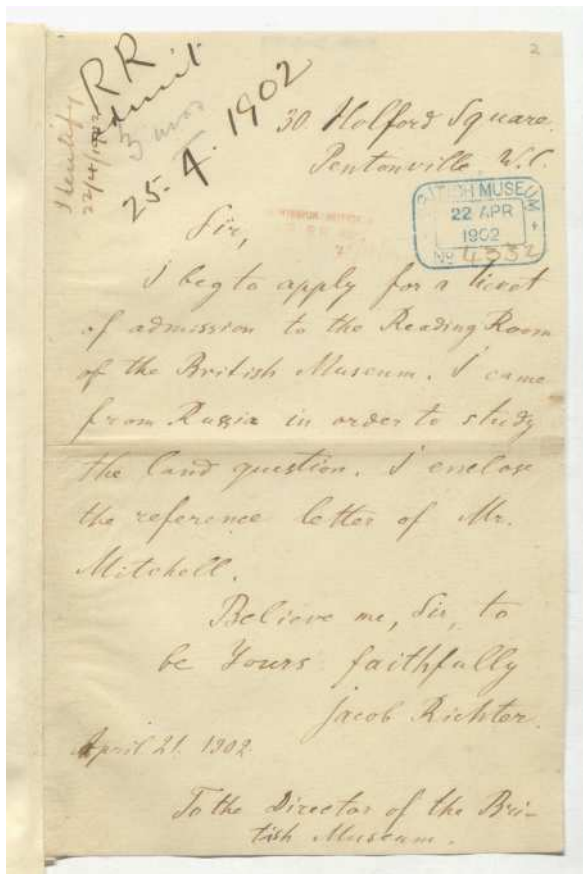 2
RR
admit
3 mos
25. 4. 1902
Identify
22/4/1902
30. Holford Square.
Pentonville W.C.
BRITISH MUSEUM
22 APR
1902
No 4332
Sir,
I beg to apply for a ticket
of admission to the Reading Room
of the British Museum. I came
from Russia in order to study
the land question. I enclose
the reference letter of Mr.
Mitchell.
Believe me, Sir, to
be Yours faithfully
Jacob Richter.
April 21. 1902.
To the Director of the Bri-
tish Museum.